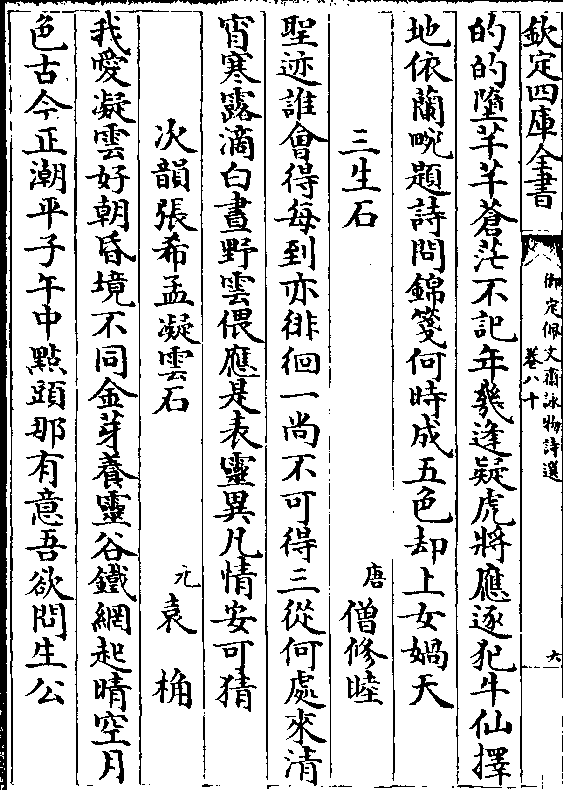 欽定四庫全書
御定佩文齋詠物詩選
卷八十
六
的的墮芊芊蒼茫不記年幾逢疑虎將應逐犯牛仙擇
地依蘭畹題詩問錦箋何時成五色却上女媧天
三生石
唐 僧修睦
聖迹誰會得每到亦徘徊一尚不可得三從何處來清
宵寒露滴白晝野雲偎應是表靈異凡情安可猜
次韻張希孟凝雲石
元 袁桷
我愛凝雲好朝昏境不同金芽養靈谷鐵網起晴空月
色古今正潮平子午中點頭那有意吾欲問生公